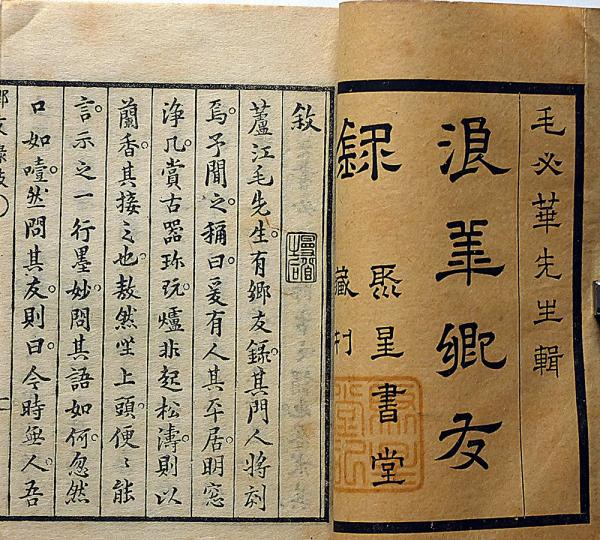 毛必華先生輯
浪華鄉友
録
聚星書堂
藏刊
敘
蘆江毛先生。有鄉友錄。其門人將刻
焉。予聞之。稱曰。爰有人。其平居。明窓
浄几。賞古器珎玩。爐非起松濤。則以
蘭香。其接之也。敖然坐上頭。便〻能
言。示之一行墨妙。問其語如何。忽然
口如噎。然問其友。則曰。今時無人。吾